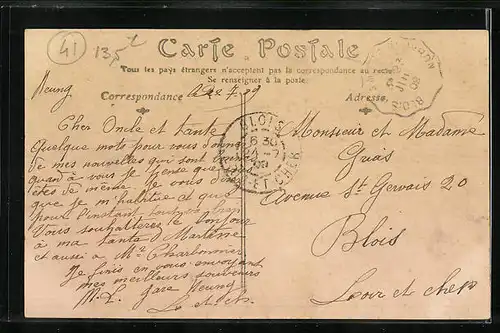 41
Carte Postale
Tous les pays étrangers n'acceptent pas la correspondance au recto
Se renseigner à la poste
Neung
Correspondance
Adresse
Cher Oncle et tante
Quelque mots pour vous donne
de mes nouvelles qui sont bonnes
quand à vous je pense que
êtes de même. Je vous dirai
que je m'habitue et que
pour l'instant
Vous souhaiterez le bonjour
à ma tante Martine
et aussi a Mr Charbonnier
Je finis en vous envoyant
mes meilleurs souvenirs
M. L. Gare Neung
L et Ch.
BLOIS
LOIR-ET-CHER
Monsieur et Madame
Gris
Avenue St Gervais 20
Blois
Loir et cher